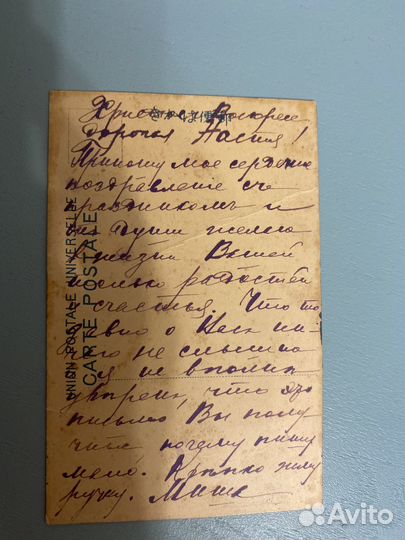 Христосъ Воскресе
дорогая Настя!
Приношу мое сердечное
поздравление съ
праздникомъ и
отъ души желаю
в жизни Вашей
только радостей
и счастья. Что то
давно о Васъ ни-
чего не слышно
я не вполнѣ
уверенъ, что это
письмо Вы полу
чите почему пишу
мало. Крѣпко жму
ручку. Миша
きか は便郵
UNION POSTALE UNIVERSELLE
CARTE POSTALE
Avito